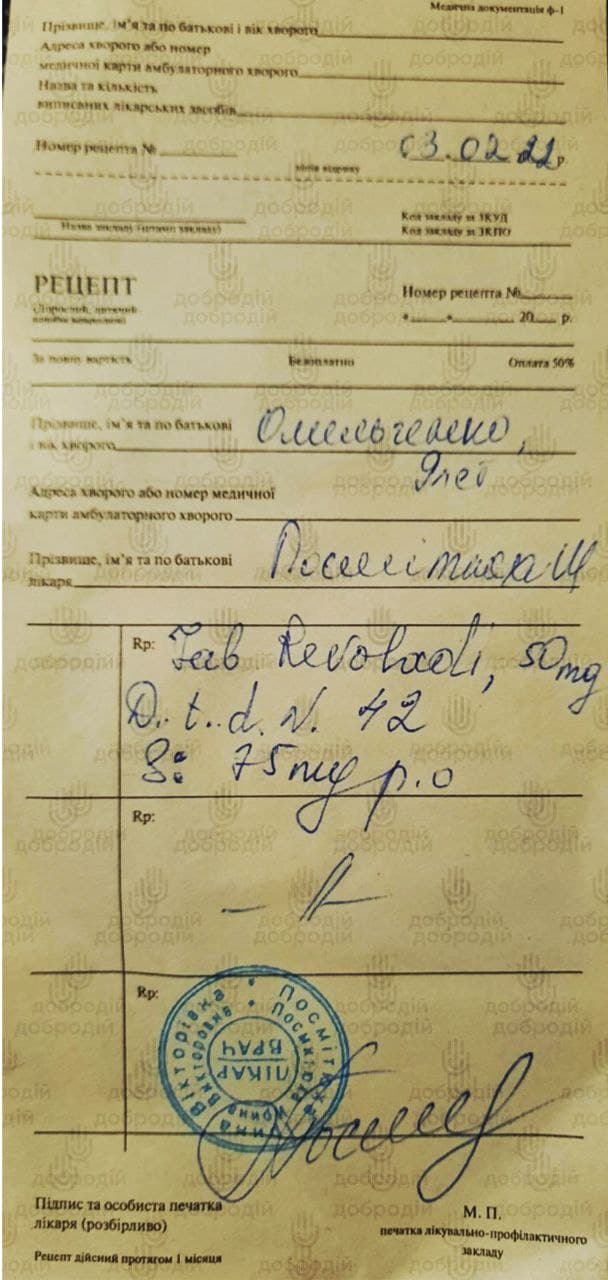 Медична документація ф-1
Прізвище, ім’я та по батькові і вік хворого
Адреса хворого або номер
медичної карти амбулаторного хворого
Назва та кількість
виписаних лікарських засобів
Номер рецепта №
03.02 22 р.
лінія відрізу
Назва закладу (штамп закладу)
Код закладу за ЗКУД
Код закладу за ЗКПО
РЕЦЕПТ
(Дорослий, дитячий
Номер рецепта №
"___"______ 20___ р.
За повну вартість Безоплатно Оплата 50%
Прізвище, ім’я та по батькові
і вік хворого Омельченко,
9 лет
Адреса хворого або номер медичної
карти амбулаторного хворого
Прізвище, ім’я та по батькові
лікаря
Rp: Tab Revoladi, 50 mg
D. t. d. N. 42
S: 75 mg p.o
Rp:
Rp:
Посмітюха
Вікторівна
Викторовна
Ирина
ЛІКАР
ВРАЧ
Підпис та особиста печатка
лікаря (розбірливо)
М. П.
печатка лікувально-профілактичного
закладу
Рецепт дійсний протягом 1 місяця
добродій